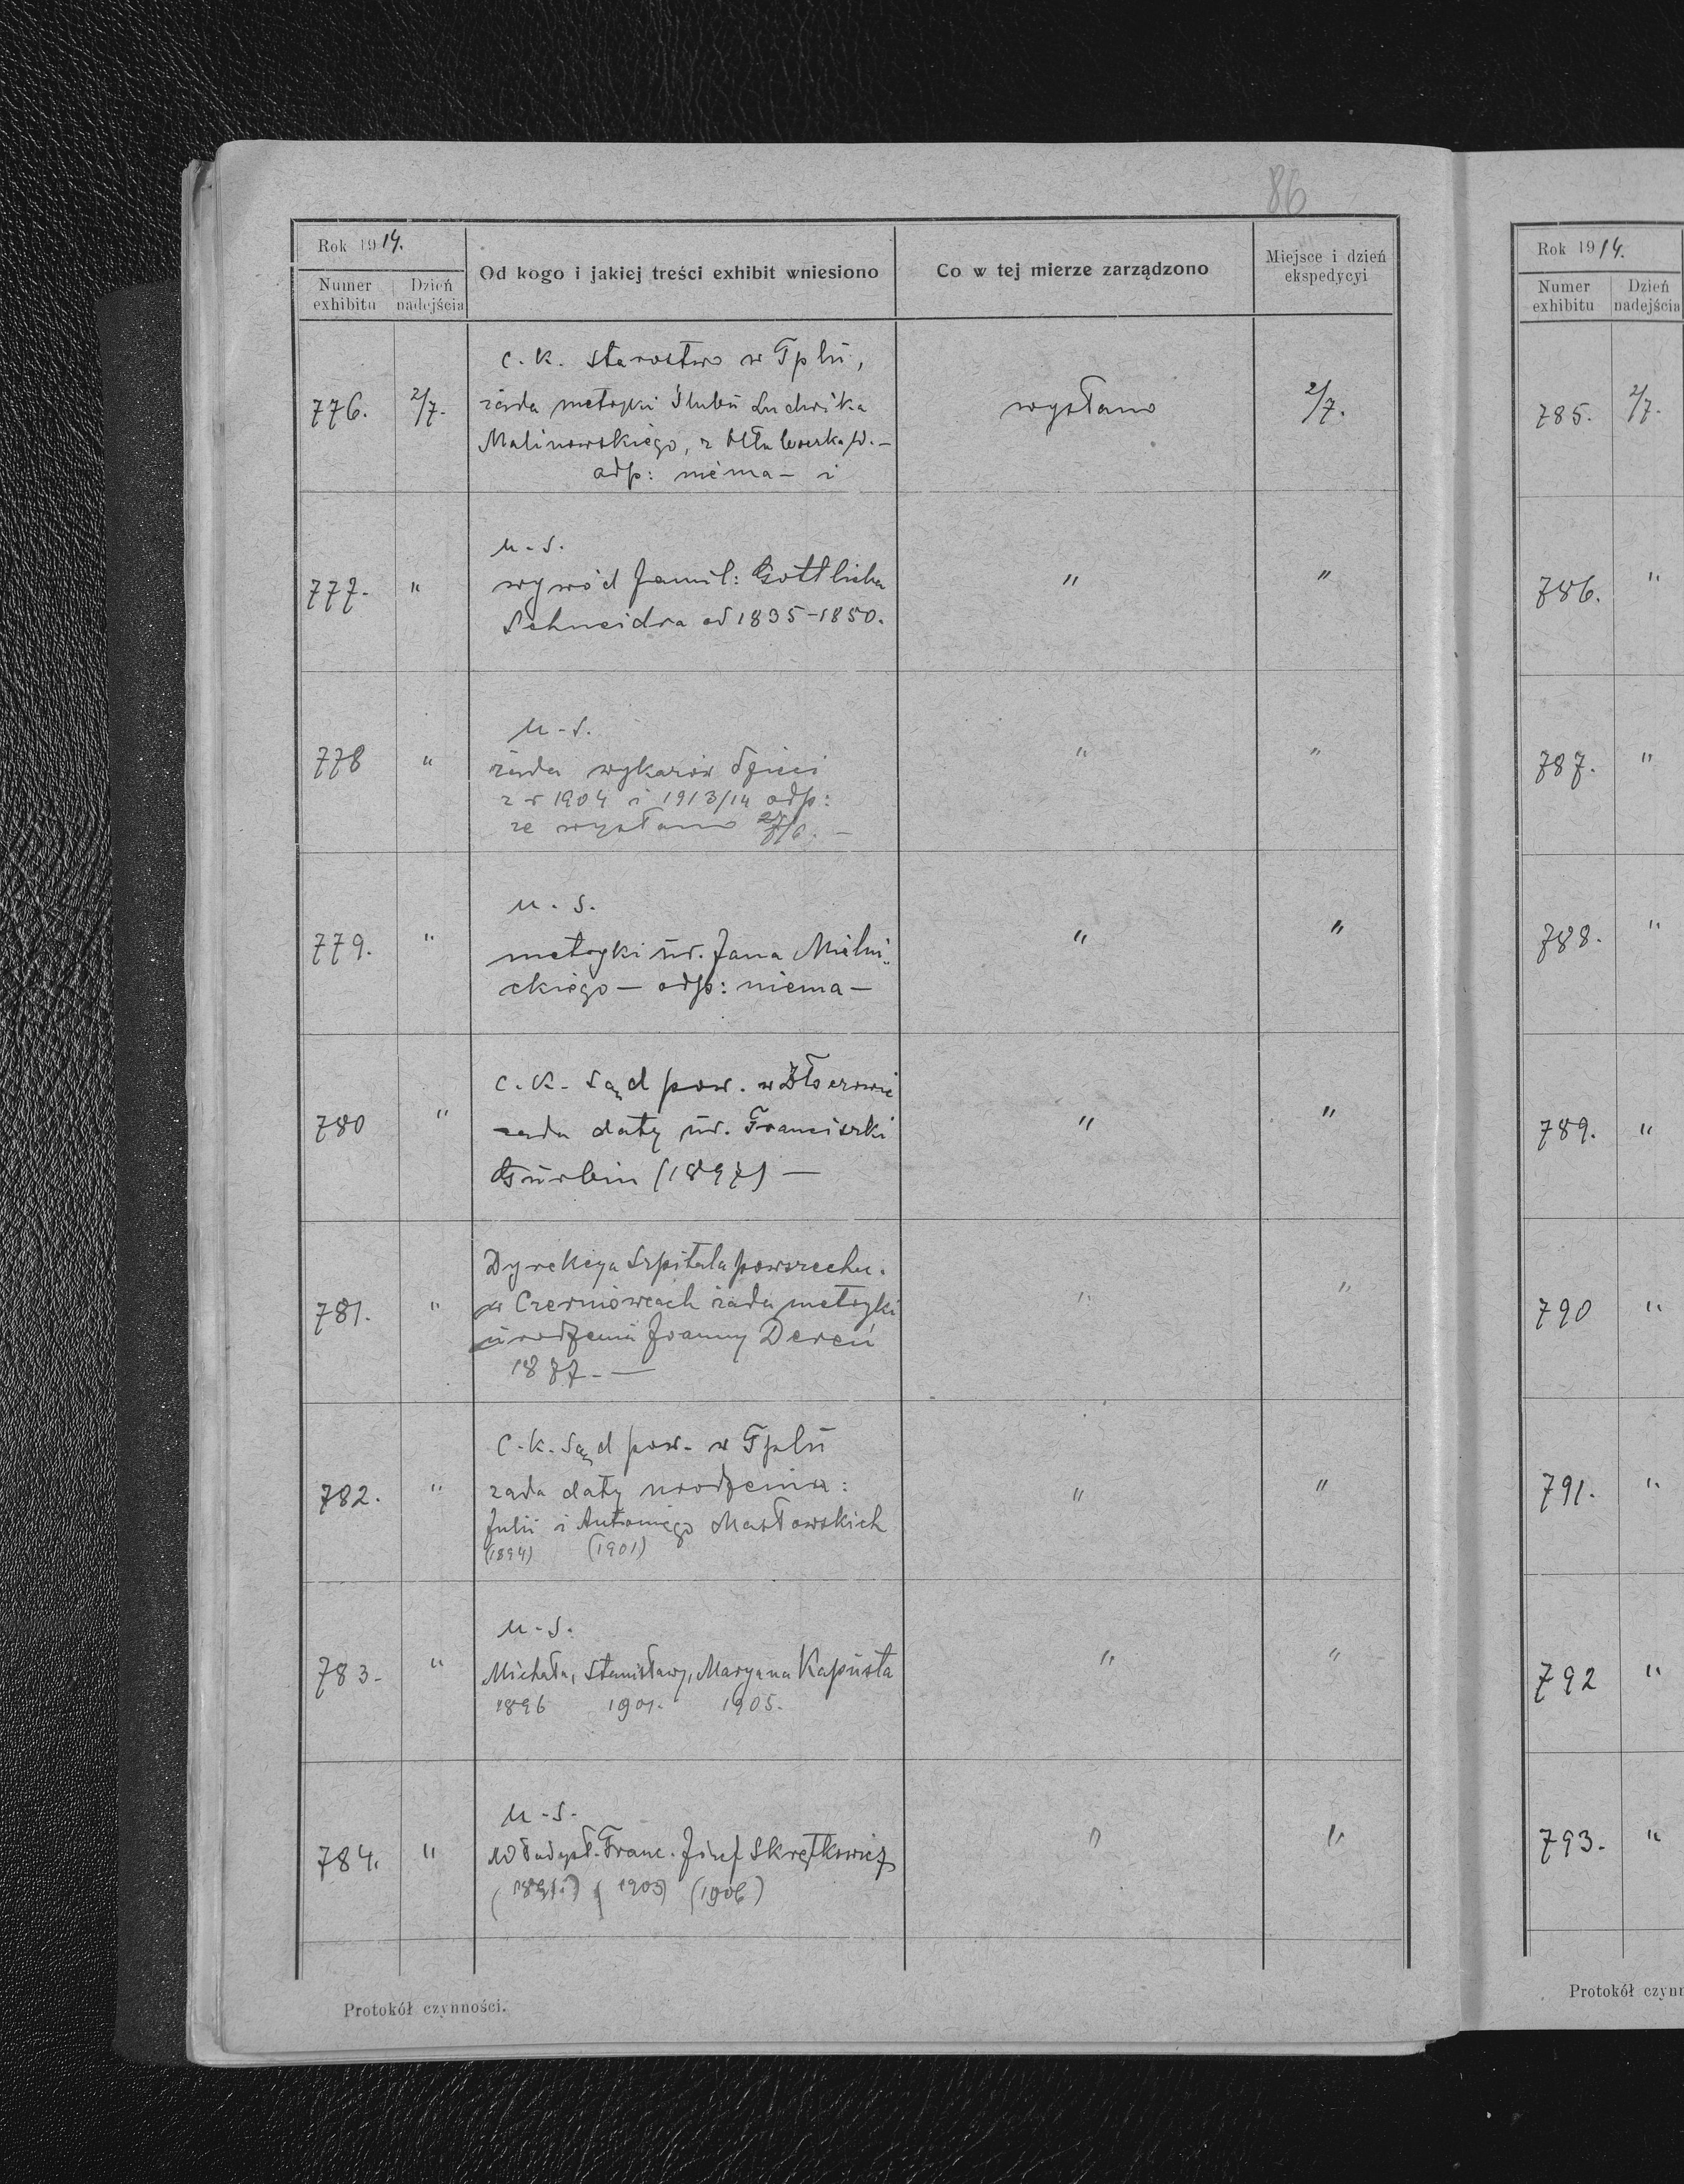 86
Rok 1914.
Numer exhibitu
Dzień nadejścia
Od kogo i jakiej treści exhibit wniesiono
Co w tej mierze zarządzono
Miejsce i dzień ekspedycyi
776. 2/7. c. k. starostwo w Tplu,
żąda metryki ślubu Ludwika
Malinowskiego, z
odp: niema – i
wysłano 2/7.
777. " u. s.
wywód famil: Gottlieba
Schneidra od 1835–1850.
" "
778 " u. s.
żąda wykazów dzieci
z r 1904 i 1913/14 odp:
że wysłano 27/6. –
" "
779. " u. s.
metryki ur. Jana Mielni„
ckiego – odp: niema –
" "
780 " c. k. Sąd pow. w
żąda daty ur. Franciszki
(1897) –
" "
781. " Dyrekcya Szpitala powszechn.
w Czerniowcach żąda metryki
urodzenia Joanny Dereń
1877. –
" "
782. " c. k. Sąd pow. w Tplu
żąda daty urodzenia:
Julii i Antoniego Masłowskich
(1894) (1901)
" "
783. " u. s.
Michała, Stanisławy, Maryana Kapusta
1896 1901. 1905.
" "
784. " u. s.
Władysł. Franc. Józef Skrętkowicz
(1903) (1906)
" "
Protokół czynności.
Rok 1914.
Numer exhibitu
Dzień nadejścia
785. 2/7.
786. "
787. "
788. "
789. "
790 "
791. "
792 "
793. "
Protokół czynn